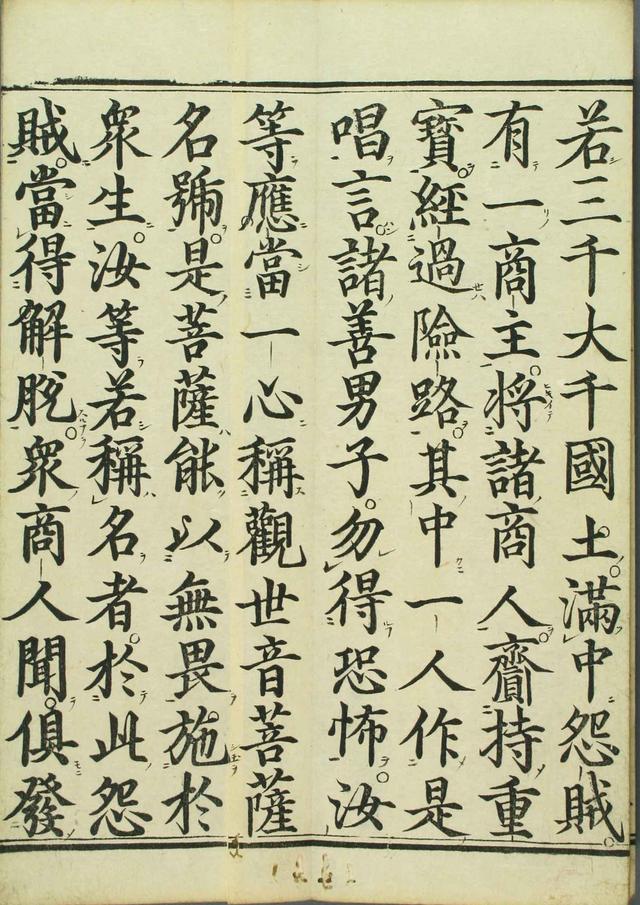 若三千大千國土滿中怨賊
有一商主將諸商人齎持重
寶經過險路其中一人作是
唱言諸善男子勿得恐怖汝
等應當一心稱觀世音菩薩
名號是菩薩能以無畏施於
衆生汝等若稱名者於此怨
賊當得解脫衆商人聞俱發